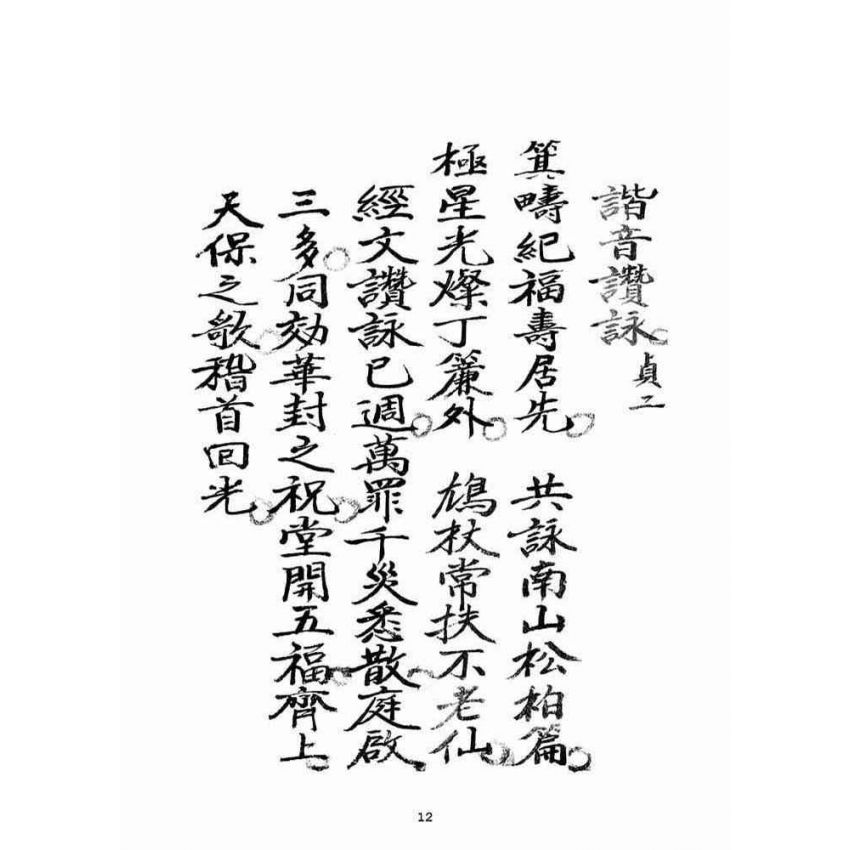 諧音讚詠。貞工
箕疇紀福壽居先。 共詠南山松柏篇。
極星光燦丁簾外。 鳩杖常扶不老仙。
經文讚詠已週。萬罪千災悉散。庭啟
三多。同効華封之祝。堂開五福。齊上
天保之歌。稽首回光。
12